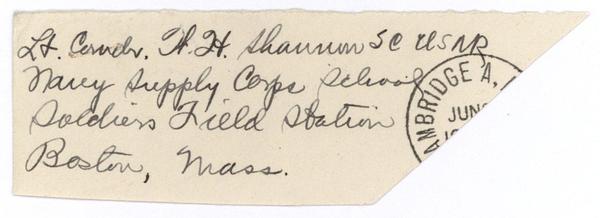 Lt. Comdr. H. H. Shannon SC USNR
Navy Supply Corps School
Soldiers Field Station
Boston, Mass.
AMBRIDGE A,
JUN